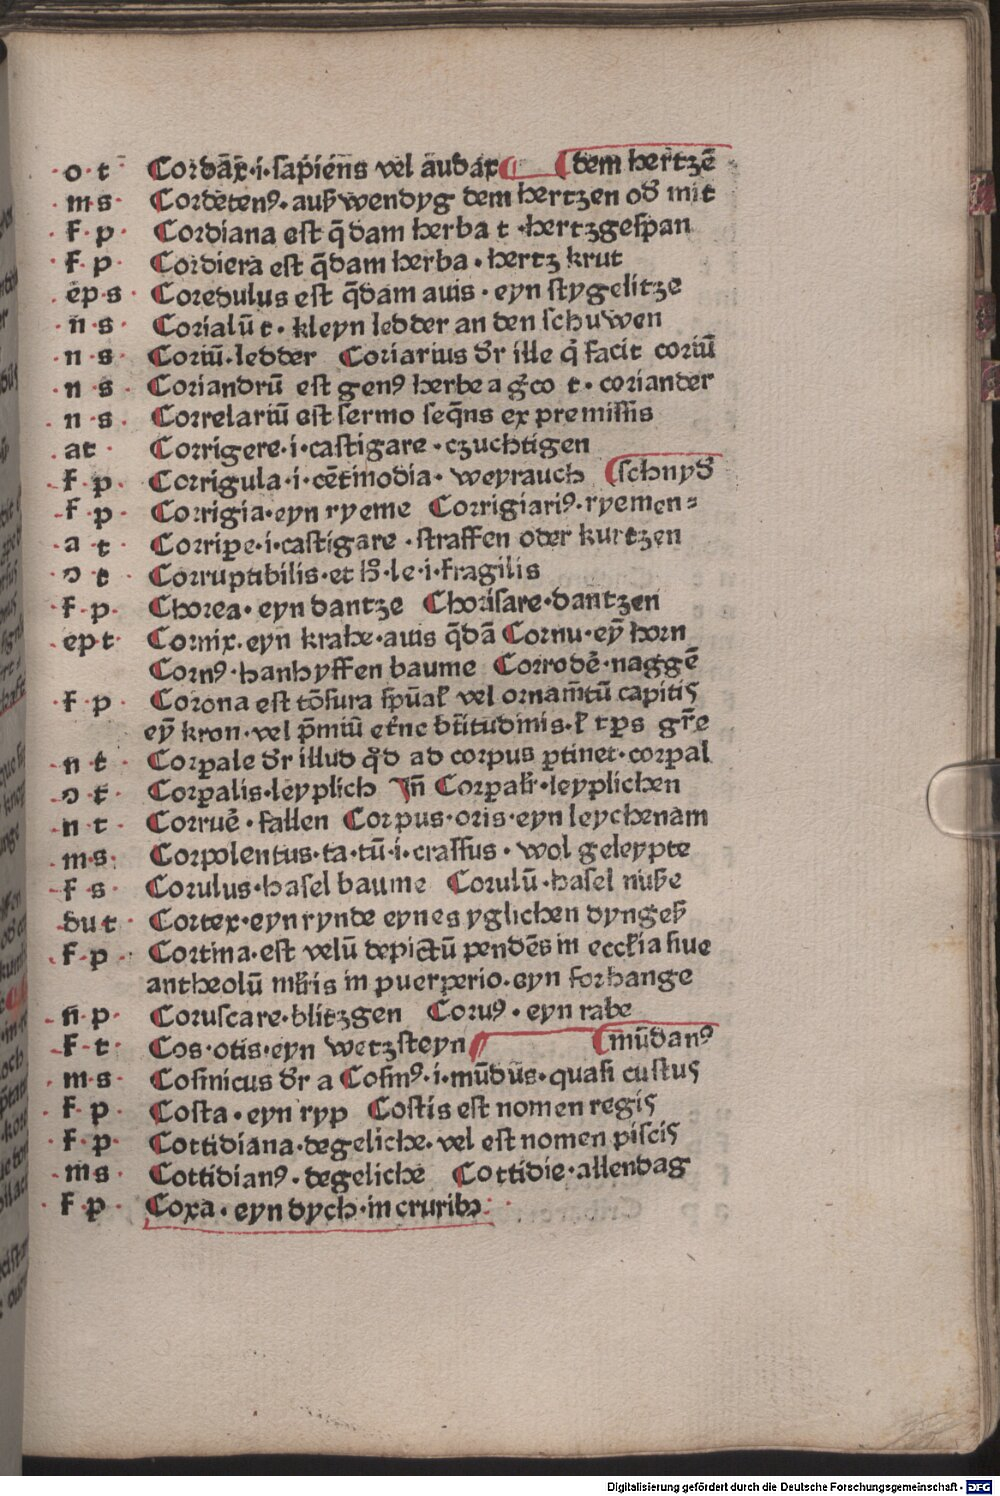 o t Cordāx̄·i·sapiēns vel audax dem hertzē
m s Cordētenꝰ·außwendyg dem hertzen od̄ mit
f p Cordiana est q̄dam herba t·hertzgespan
f p Cordiera est q̄dam herba·hertz krut
ēp s Coredulus est q̄dam auis·eyn stygelitze
n s Corialū t·kleyn ledder an den schuwen
n s Coriū·ledder Coriarius dr̄ ille q̇ facit coriū
n s Coriandrū est genꝰ herbe a gͦco t·coriander
n s Correlariū est sermo seq̄ns ex premissis
at Corrigere·i·castigare·czuchtigen
f p Corrigula·i·cētinodia·weyrauch schnyd̄
f p Corrigia·eyn ryeme Corrigiariꝰ·ryemen⸗
a t Corriꝑe·i·castigare·straffen oder kurtzen
o t Corruptibilis·et h̄·le·i·fragilis
f p Chorea·eyn dantze Chorisare·dantzen
ep t Cornix·eyn krahe·auis q̄dā Cornu·eȳ horn
Cornꝰ·hanhyffen baume Corrodē·naggē
f p Corona est tōsura sp̄ual̄ vel ornam̄tū capitis
eȳ kron·vel p̄miū et̄ne bt̄itudinis·l̄ tp̄s gr̄e
n t Corꝑale dr̄ illud qd̄ ad corpus ꝑtinet·corpal
o t Corꝑalis·leyplich Jn̄ Corꝑalr̄·leyplichen
n t Corruē·fallen Corpus·oris·eyn leychenam
m s Corpolentus·ta·tū·i·crassus·wol geleypte
f s Corulus·hasel baume Corulū·hasel nuße
du t Cortex·eyn rynde eynes yglichen dyngeß
f p Cortina·est velū depictū pendēs in eccl̄ia siue
antheolū mr̄is in puerperio·eyn forhange
n p Coruscare·blitzgen Coruꝰ·eyn rabe
f t Cos·otis·eyn wetzsteyn mūdanꝰ
m s Cosmicus dr̄ a Cosmꝰ·i·mūdus·quasi custus
f p Costa·eyn ryp Costis est nomen regis
f p Cottidiana·degeliche·vel est nomen piscis
m s Cottidianꝰ·degeliche Cottidie·allendag
f p Coxa·eyn dych·in cruribꝫ
Digitalisierung gefördert durch die Deutsche Forschungsgemeinschaft - DFG